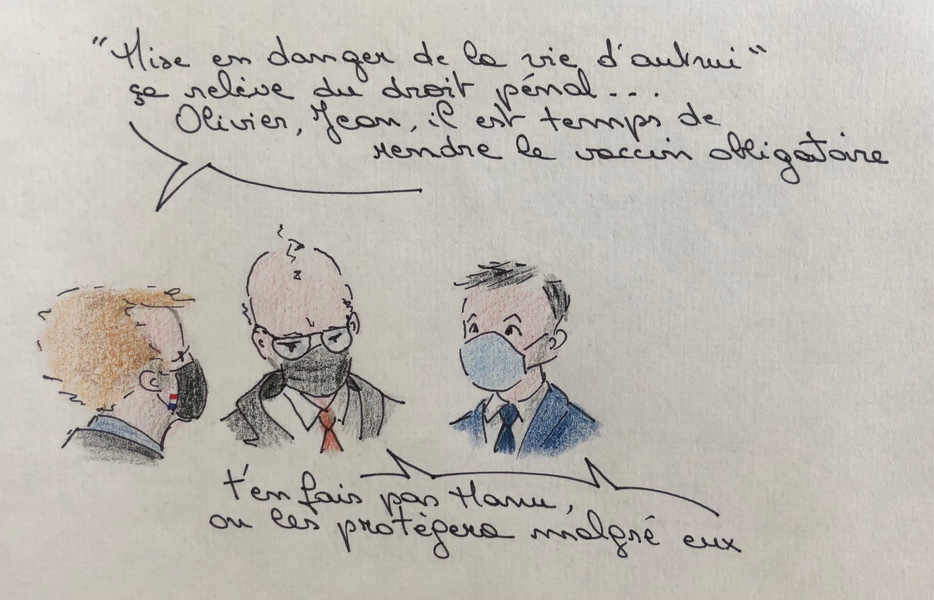 "Mise en danger de la vie d'autrui"
ça relève du droit pénal...
Olivier, Jean, il est temps de
rendre le vaccin obligatoire
t'en fais pas Manu,
on les protègera malgré eux